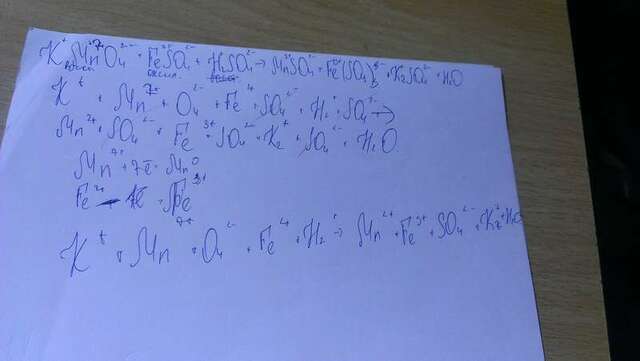 K⁺Mn⁷⁺O₄²⁻ + Fe²⁺SO₄²⁻ + H₂SO₄²⁻ → Mn²⁺SO₄²⁻ + Fe³⁺(SO₄)₃²⁻ + K₂SO₄²⁻ + H₂O
K⁺ + Mn⁷⁺ + O₄²⁻ + Fe²⁺ + SO₄²⁻ + H₂⁺ SO₄²⁻ →
Mn²⁺ + SO₄²⁻ + Fe³⁺ + SO₄²⁻ + K₂⁺ + SO₄²⁻ + H₂O
Mn⁷⁺ + 7e⁻ Mn⁰
Fe²⁺ - Fe³⁺
K⁺ + Mn⁷⁺ + O₄²⁻ + Fe²⁺ + H₂⁺ → Mn²⁺ + Fe³⁺ + SO₄²⁻ + K₂⁺ + H₂O